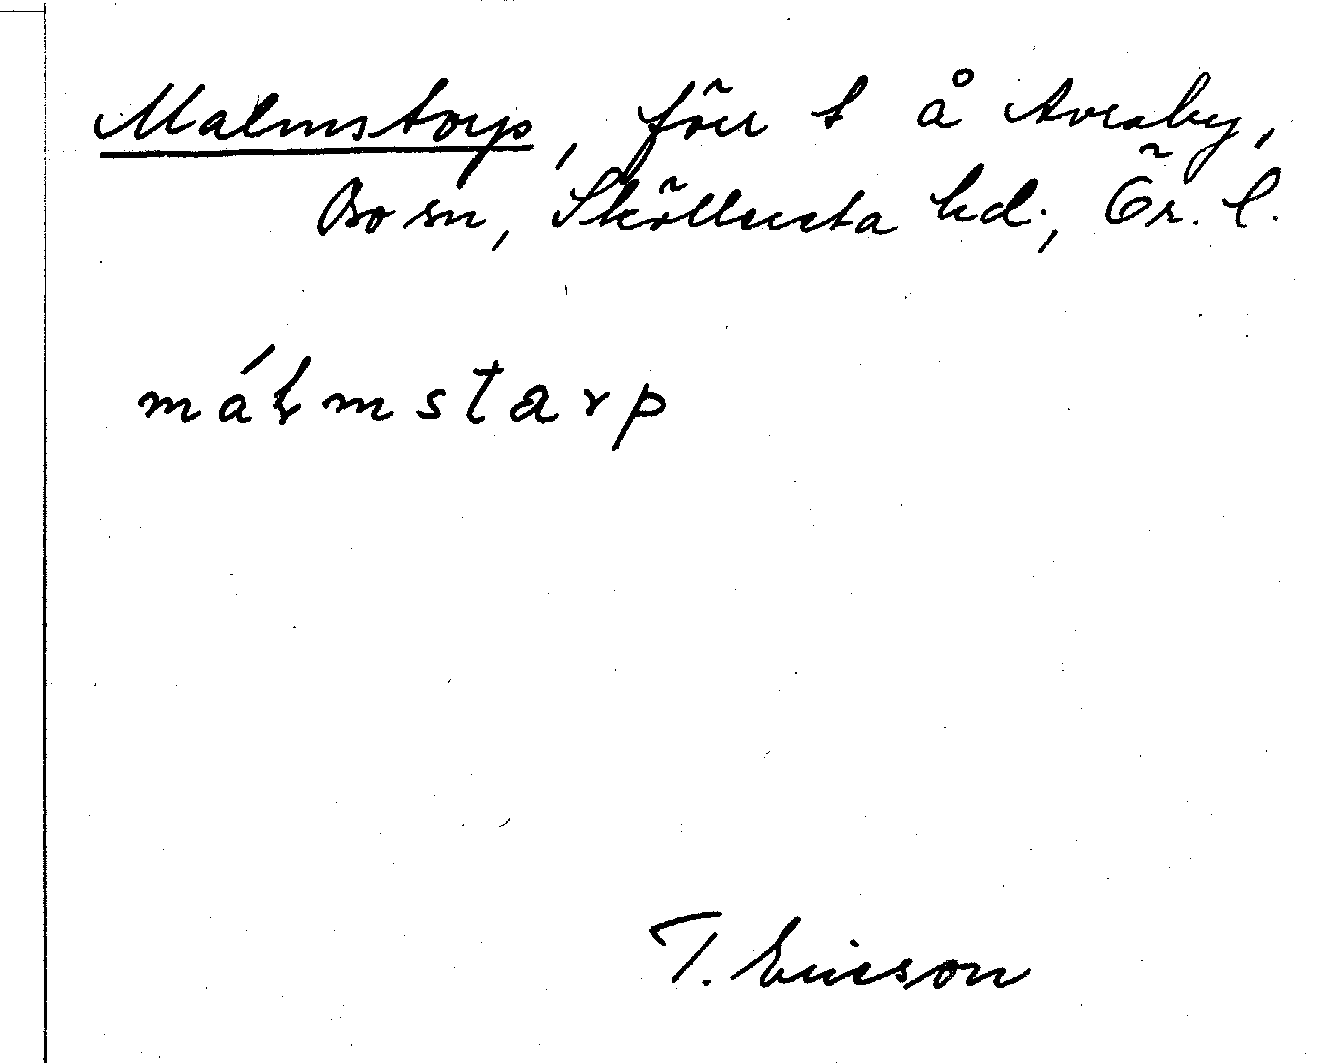 Malmstorp, förr t å Avraby,
Bo sn, Sköllersta hd., Ör. l.
málmstarp
T. Ericson